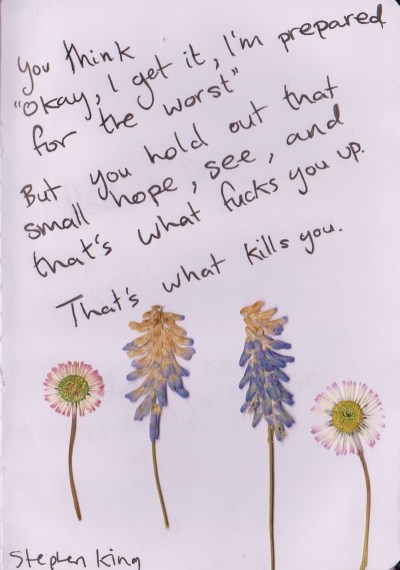 You think
"Okay, I get it, I'm prepared
for the worst"
But you hold out that
small hope, see, and
that's what fucks you up.
That's what kills you.
Stephen King